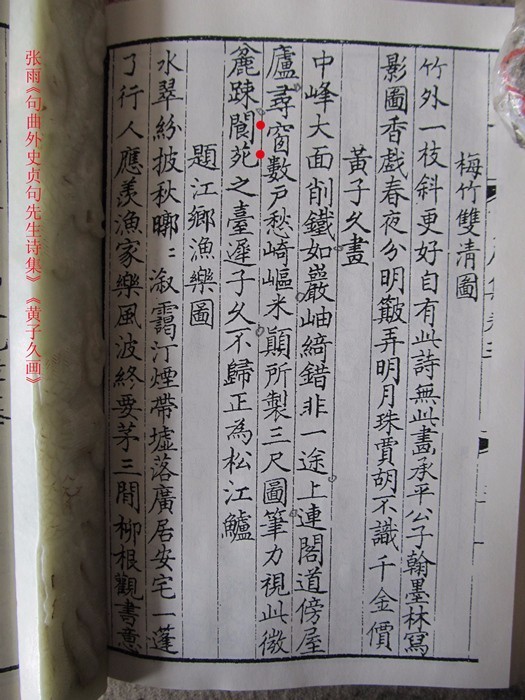 梅竹雙清圖
竹外一枝斜更好自有此詩無此畫承平公子翰墨林寫
影圖香戲春夜分明簸弄明月珠賈胡不識千金價
黃子久畫
中峰大面削鐵如巖岫綺錯非一途上連閣道傍屋
廬尋窗數戶愁崎嶇米顛所製三尺圖筆力視此微
麄踈閬苑之臺遲子久不歸正為松江鱸
題江鄉漁樂圖
水翠紛披秋㘣〻淑靄汀煙帶墟落廣居安宅一蓬
了行人應羨漁家樂風波終要茅三間柳根觀書意
张雨《句曲外史贞句先生诗集》《黄子久画》